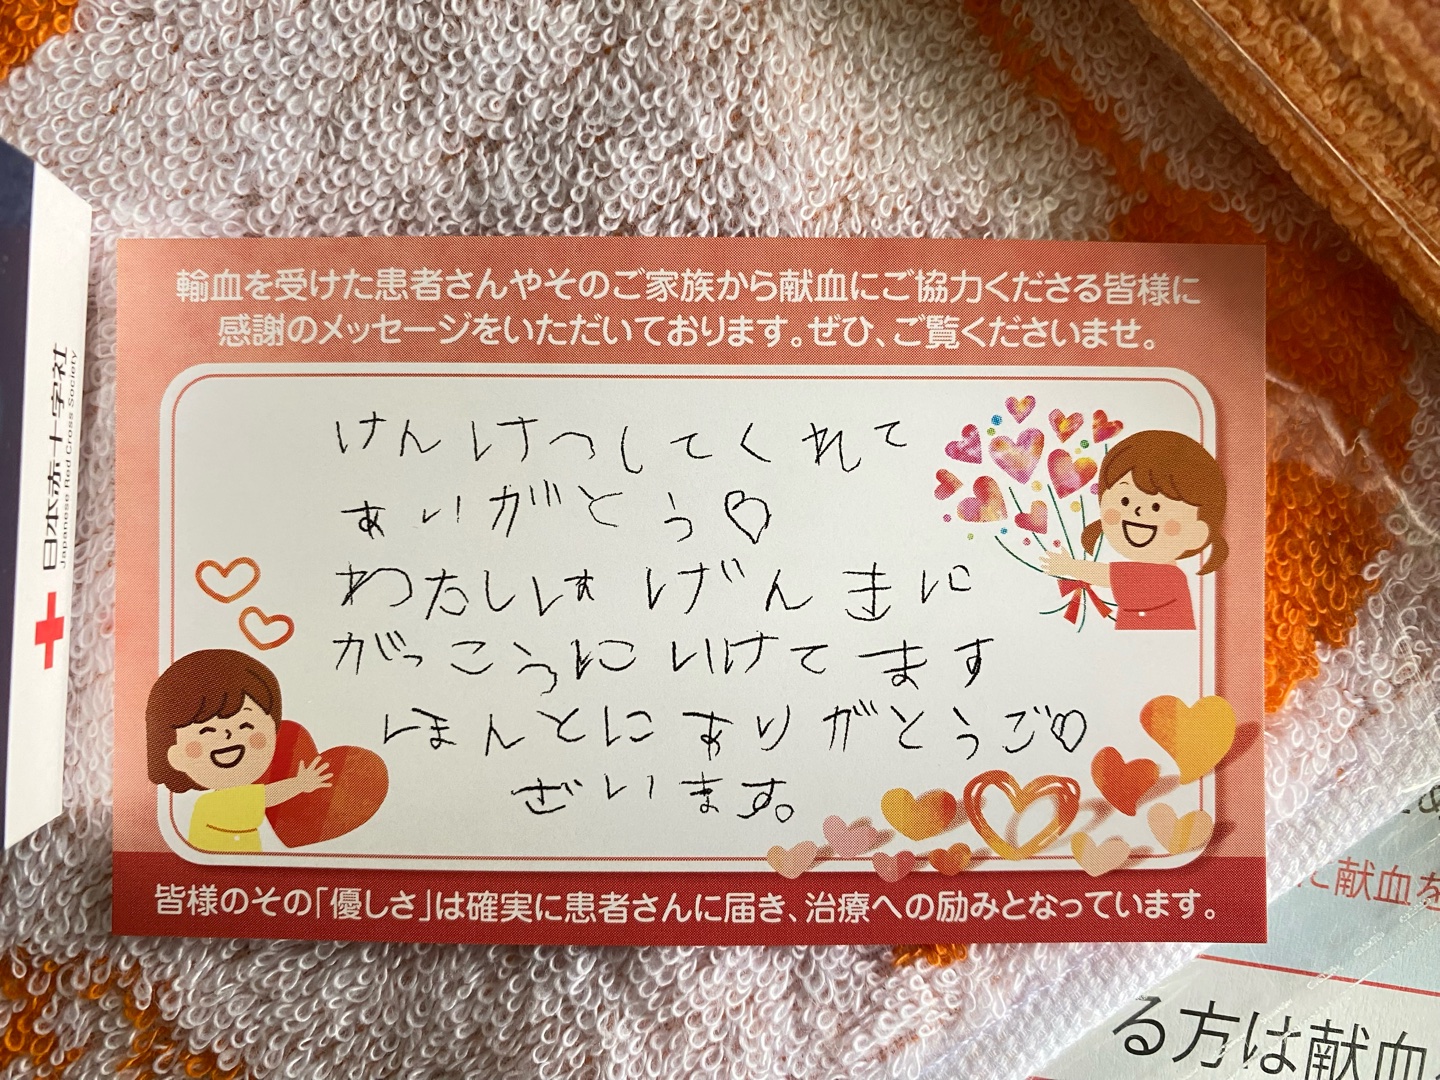 輸血を受けた患者さんやそのご家族から献血にご協力くださる皆様に
感謝のメッセージをいただいております。ぜひ、ご覧くださいませ。
けんけつしてくれて
ありがとう♡
わたしは げんきに
がっこうに いけてます
ほんとに ありがとうご♡
ざいます。
皆様のその「優しさ」は確実に患者さんに届き、治療への励みとなっています。
日本赤十字社
Japanese Red Cross Society
に献血を
る方は献血